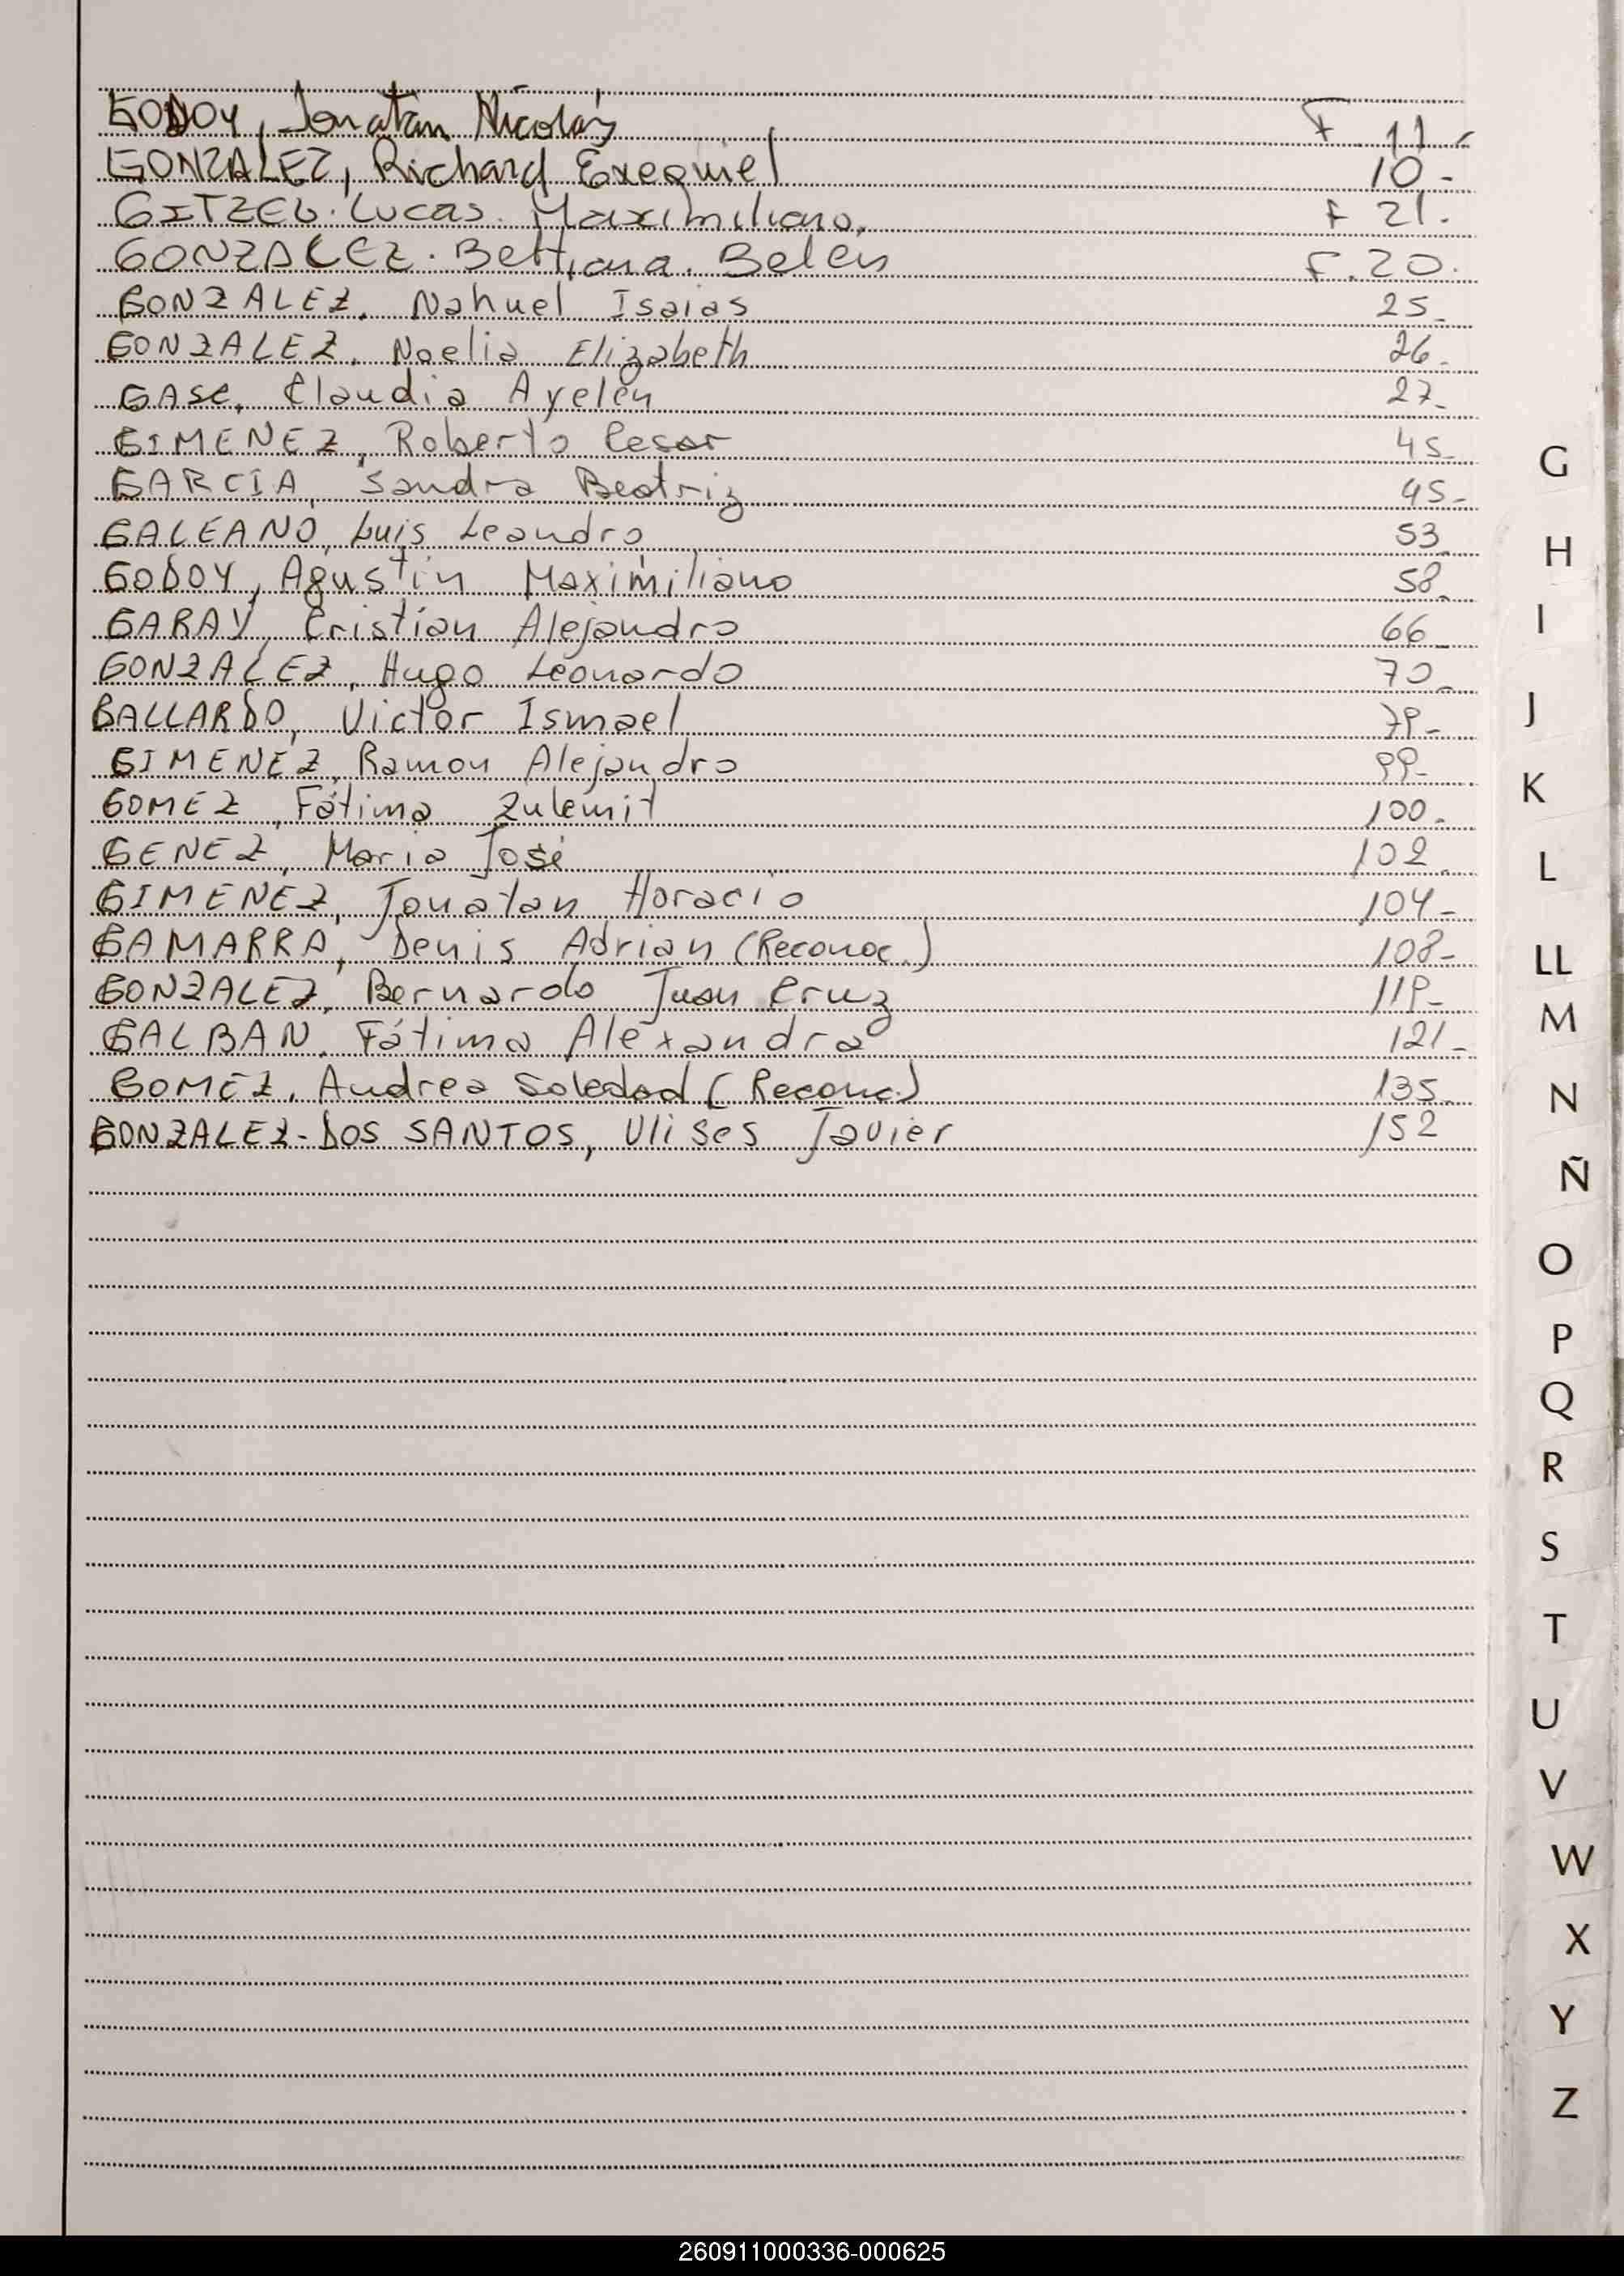 GODOY, Jonatan Nicolás F 11.-
GONZALEZ, Richard Exequiel 10-
GITZEL. Lucas. Maximiliano. F 21.
GONZALEZ. Bettiana. Belen F. 20.
GONZALEZ. Nahuel Isaias 25-
GONZALEZ. Noelia Elizabeth 26-
GASE, Claudia Ayelén 27-
GIMENEZ, Roberto Cesar 45-
GARCIA, Sandra Beatriz 45-
GALEANO, Luis Leandro 53-
GODOY, Agustín Maximiliano 58-
GARAY, Cristian Alejandro 66-
GONZALEZ, Hugo Leonardo 70-
BALLARDO, Victor Ismael 79-
GIMENEZ, Ramon Alejandro 99-
GOMEZ, Fátima Zulemit 100-
GENEZ, Maria José 102-
GIMENEZ, Jonatan Horacio 104-
GAMARRA, Denis Adrian (Reconoc.) 108-
GONZALEZ, Bernardo Juan Cruz 119-
GALBAN, Fátima Alexandra 121-
GOMEZ, Andrea Soledad (Reconc.) 135-
GONZALEZ-DOS SANTOS, Ulises Javier 152
G
H
I
J
K
L
LL
M
N
Ñ
O
P
Q
R
S
T
U
V
W
X
Y
Z
260911000336-000625